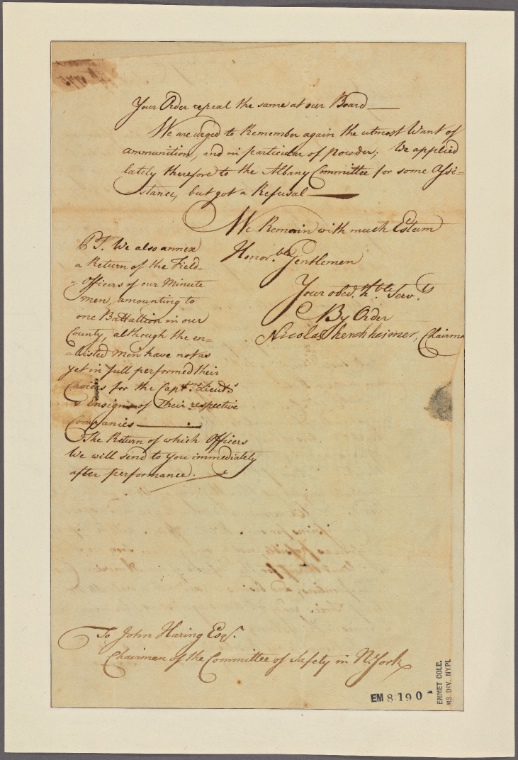 Your Order repeal the same at our Board —
We are urged to Remember again the utmost Want of
ammunition, and in particular of powder; We applied
lately therefore to the Albany Committee for some Assi-
stance, but got a Refusal —
We Remain with much Esteem
Honor.ble Gentlemen
Your obed.t h.ble Serv.ts
By Order
Nicolas Herchheimer, Chairma
P.S. We also annex
a Return of the Field-
officers of our Minute
men, amounting to
one Battallion in our
County, although the en-
-listed Men have not as
yet in full performed their
choices for the Capt.s Lieut.s
& Ensigns of their respective
Companies —
The Return of which Officers
We will send to you immediately
after performance.
To John Haring Esq.r
Chairman of the Committee of Safety in N.York
EM 8190
EMMET COLL.
MS. DIV. NYPL